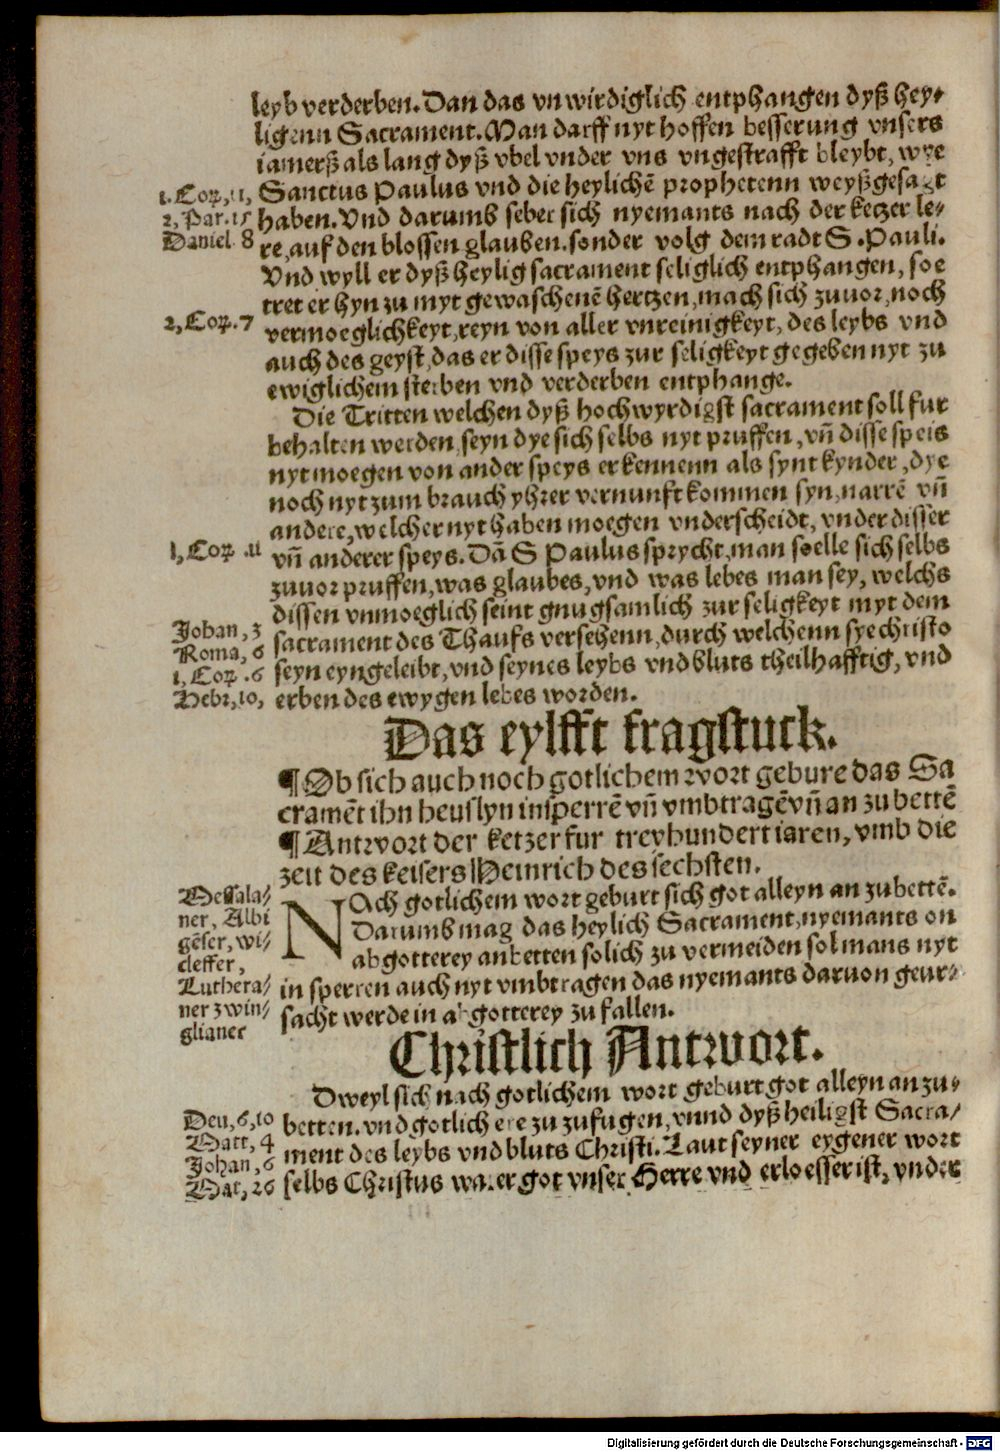 leyb verderben. Dan das vnwirdiglich entphangen dyß hey-
ligenn Sacrament. Man darff nyt hoffen besserung vnsers
iamerß als lang dyß vbel vnder vns vngestrafft bleybt, wye
1. Cor, 11, Sanctus Paulus vnd die heylichē prophetenn weyßgesagt
2, Par. 15 haben. Vnd darumb sebet sich nyemants nach der ketzer le-
Daniel 8 re, auf den blossen glauben. sonder volg dem radt S. Pauli.
Vnd wyll er dyß heylig sacrament seliglich entphangen, soe
tret er hyn zu myt gewaschenē hertzen, mach sich zuuor, noch
2, Cor. 7 vermoeglichkeyt, reyn von aller vnreinigkeyt, des leybs vnd
auch des geyst, das er disse speys zur seligkeyt gegeben nyt zu
ewiglichem sterben vnd verderben entphange.
Die Tritten welchen dyß hochwyrdigst sacrament soll fur
behalten werden, seyn dye sich selbs nyt pruffen, vñ disse speis
nyt moegen von ander speys erkennenn als synt kynder, dye
noch nyt zum brauch yhrer vernunft kommen syn, narrē vñ
andere, welcher nyt haben moegen vnderscheidt, vnder disser
1, Cor. 11 vñ anderer speys. Dā S Paulus sprycht, man soelle sich selbs
zuuor pruffen, was glaubes, vnd was lebes man sey, welchs
dissen vnmoeglich seint gnugsamlich zur seligkeyt myt dem
Johan, 3 sacrament des Thaufs versehenn, durch welchenn sye christo
Roma, 6 seyn eyngeleibt, vnd seynes leybs vnd bluts theilhafftig, vnd
1, Cor. 6
Hebr, 10, erben des ewygen lebes worden.
Das eylfft fragstuck.
¶ Ob sich auch noch gotlichem wort gebure das Sa
cramēt ihn heuslyn insperrē vñ vmbtragē vñ an zu bettē
¶ Antwort der ketzer fur treyhundert iaren, vmb die
zeit des keisers Heinrich des sechsten.
NAch gotlichem wort geburt sich got alleyn an zu bettē.
Darumb mag das heylich Sacrament, nyemants on
abgotterey anbetten solich zu vermeiden sol mans nyt
in sperren auch nyt vmbtragen das nyemants daruon geur-
sacht werde in abgotterey zu fallen.
ner, Albi
gēser, wi-
cleffer,
Luthera-
ner zwin-
glianer
Christlich Antwort.
Dweyl sich nach gotlichem wort geburt got alleyn an zu-
Deu, 6, 10 betten. vnd gotlich ere zu zufugen, vnnd dyß heiligst Sacra-
Matt, 4 ment des leybs vnd bluts Christi. Laut seyner eygener wort
Johan, 6
Mat, 26 selbs Christus warer got vnser Herre vnd erloesser ist, vnder
Digitalisierung gefördert durch die Deutsche Forschungsgemeinschaft - DFG